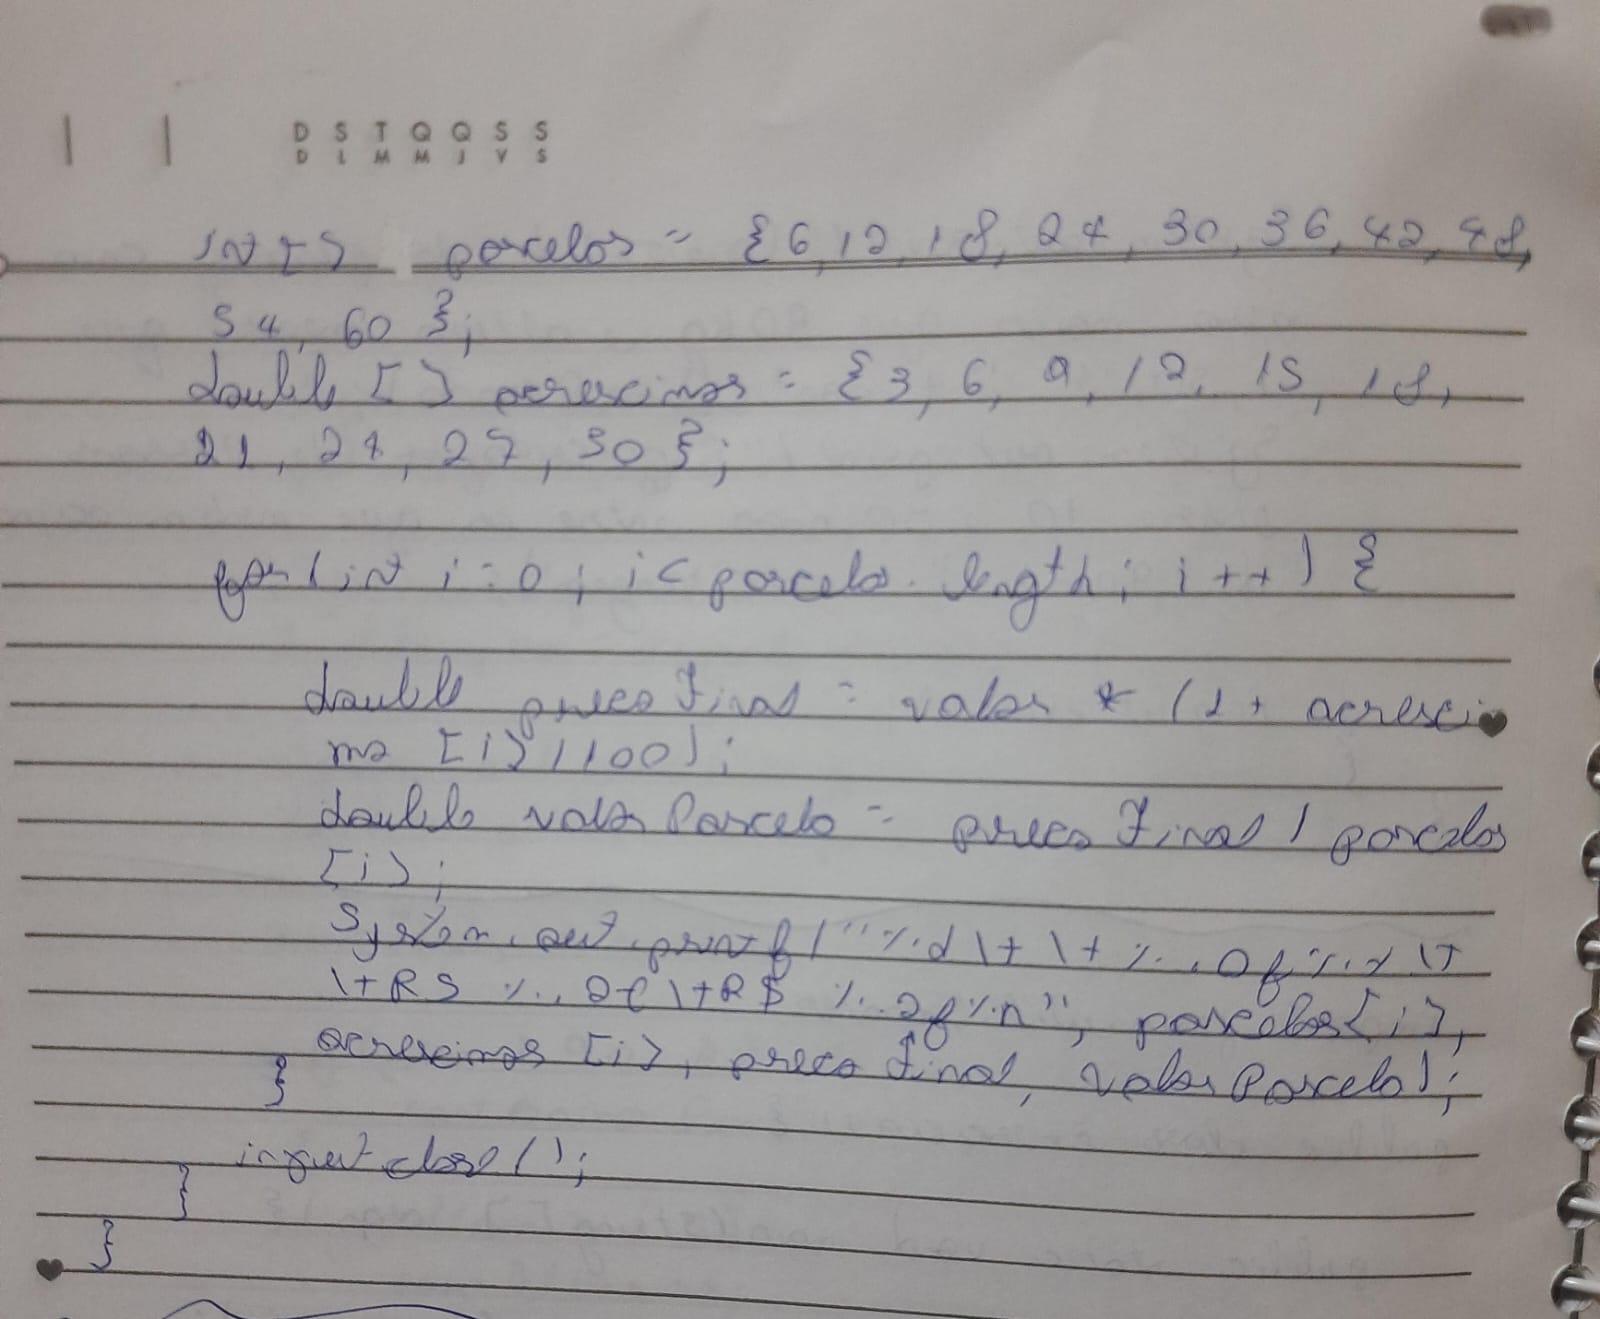 D S T Q Q S S
D L M M J V S
int [] parcelas = {6, 12, 18, 24, 30, 36, 42, 48,
54, 60 };
double [] acrescimos = {3, 6, 9, 12, 15, 18,
21, 24, 27, 30 };
for (int i = 0; i < parcelas.length; i++) {
double precoFinal = valor * (1 + acresci
mo [i] / 100);
double valorParcela = precoFinal / parcelas
[i];
System.out.printf("%d\t\t%.0f%%\t
\tR$ %.2f\tR$ %.2f%n", parcelas[i],
acrescimos [i], precoFinal, valorParcela);
}
input.close();
}
}